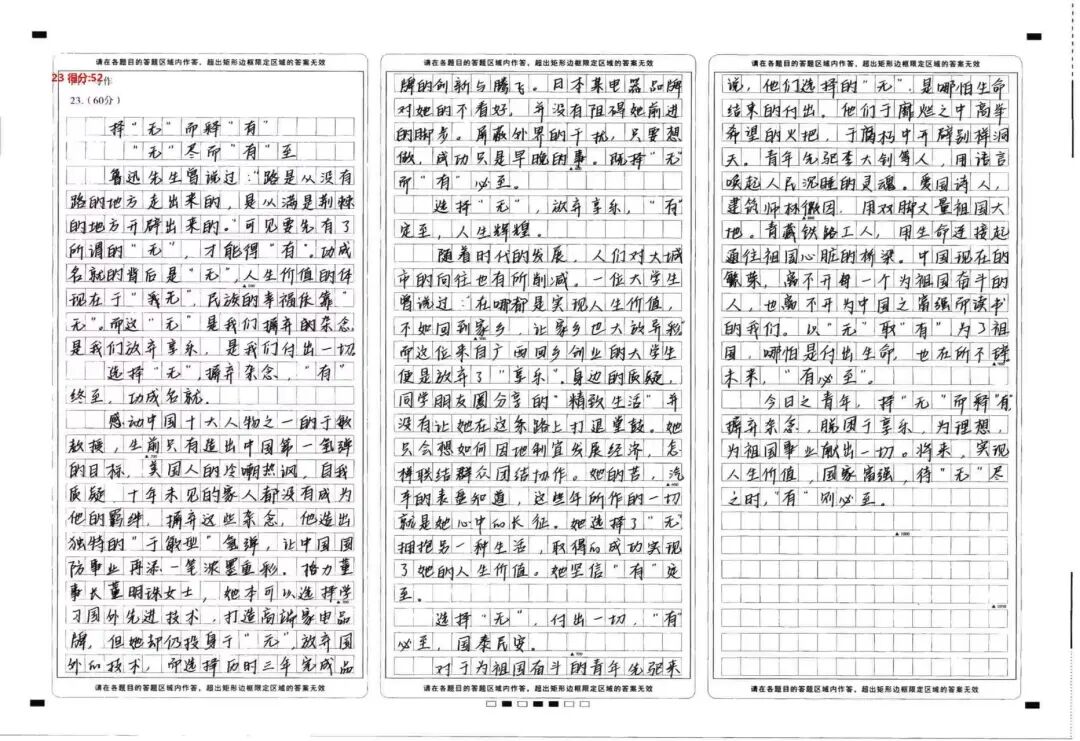 请在各题目的答题区域内作答，超出矩形边框限定区域的答案无效
23 得分:52
作
23.（60分）
择“无”而释“有”
“无”尽而“有”至
鲁迅先生曾说过：“路是从没有
路的地方走出来的，是从满是荆棘
的地方开辟出来的。”可见要先有了
所谓的“无”，才能得“有”。功成
名就的背后是“无”，人生价值的体
现在于“我无”，民族的幸福依靠“
无”。而这“无”是我们摒弃的杂念，
是我们放弃享乐，是我们付出一切。
选择“无”，摒弃杂念，“有”
终至，功成名就。
感动中国十大人物之一的于敏
教授，生前只有造出中国第一氢弹
的目标，美国人的冷嘲热讽，自我
质疑，十年未见的家人都没有成为
他的羁绊，摒弃这些杂念，他造出
独特的“于敏型”氢弹，让中国国
防事业再添一笔浓墨重彩。格力董
事长董明珠女士，她本可以选择学
习国外先进技术，打造高端家电品
牌，但她却仍投身于“无”，放弃国
外的技术，而选择历时三年完成品
请在各题目的答题区域内作答，超出矩形边框限定区域的答案无效
请在各题目的答题区域内作答，超出矩形边框限定区域的答案无效
牌的创新与腾飞。日本某电器品牌
对她的不看好，并没有阻碍她前进
的脚步。屏蔽外界的干扰，只要想
做，成功只是早晚的事。既择“无”
而“有”必至。
选择“无”，放弃享乐，“有”
定至，人生辉煌。
随着时代的发展，人们对大城
市的向往也有所削减。一位大学生
曾说过：“在哪都是实现人生价值，
不如回到家乡，让家乡也大放异彩”
而这位来自广西回乡创业的大学生
便是放弃了“享乐”。身边的质疑，
同学朋友圈分享的“精致生活”并
没有让她在这条路上打退堂鼓。她
只会想如何因地制宜发展经济，怎
样联结群众团结协作。她的苦，汽
车的表盘知道，这些年所作的一切
就是她心中的长征。她选择了“无”
拥抱另一种生活，取得的成功实现
了她的人生价值。她坚信“有”定
至。
选择“无”，付出一切，“有”
必至，国泰民安。
对于为祖国奋斗的青年先驱来
请在各题目的答题区域内作答，超出矩形边框限定区域的答案无效
请在各题目的答题区域内作答，超出矩形边框限定区域的答案无效
说，他们选择的“无”，是哪怕生命
结束的付出。他们于腐烂之中高举
希望的火把，于腐朽中开辟别样洞
天。青年先驱李大钊等人，用语言
唤起人民沉睡的灵魂。爱国诗人，
建筑师林徽因，用双脚丈量祖国大
地。青藏铁路工人，用生命连接起
通往祖国心脏的桥梁。中国现在的
繁荣，离不开每一个为祖国奋斗的
人，也离不开为中国之富强所读书
的我们。以“无”取“有”为了祖
国，哪怕是付出生命，也在所不辞
未来，“有必至”。
今日之青年，择“无”而释“有”
摒弃杂念，脱困于享乐，为理想，
为祖国事业献出一切。将来，实现
人生价值，国家富强，待“无”尽
之时，“有”则必至。
请在各题目的答题区域内作答，超出矩形边框限定区域的答案无效